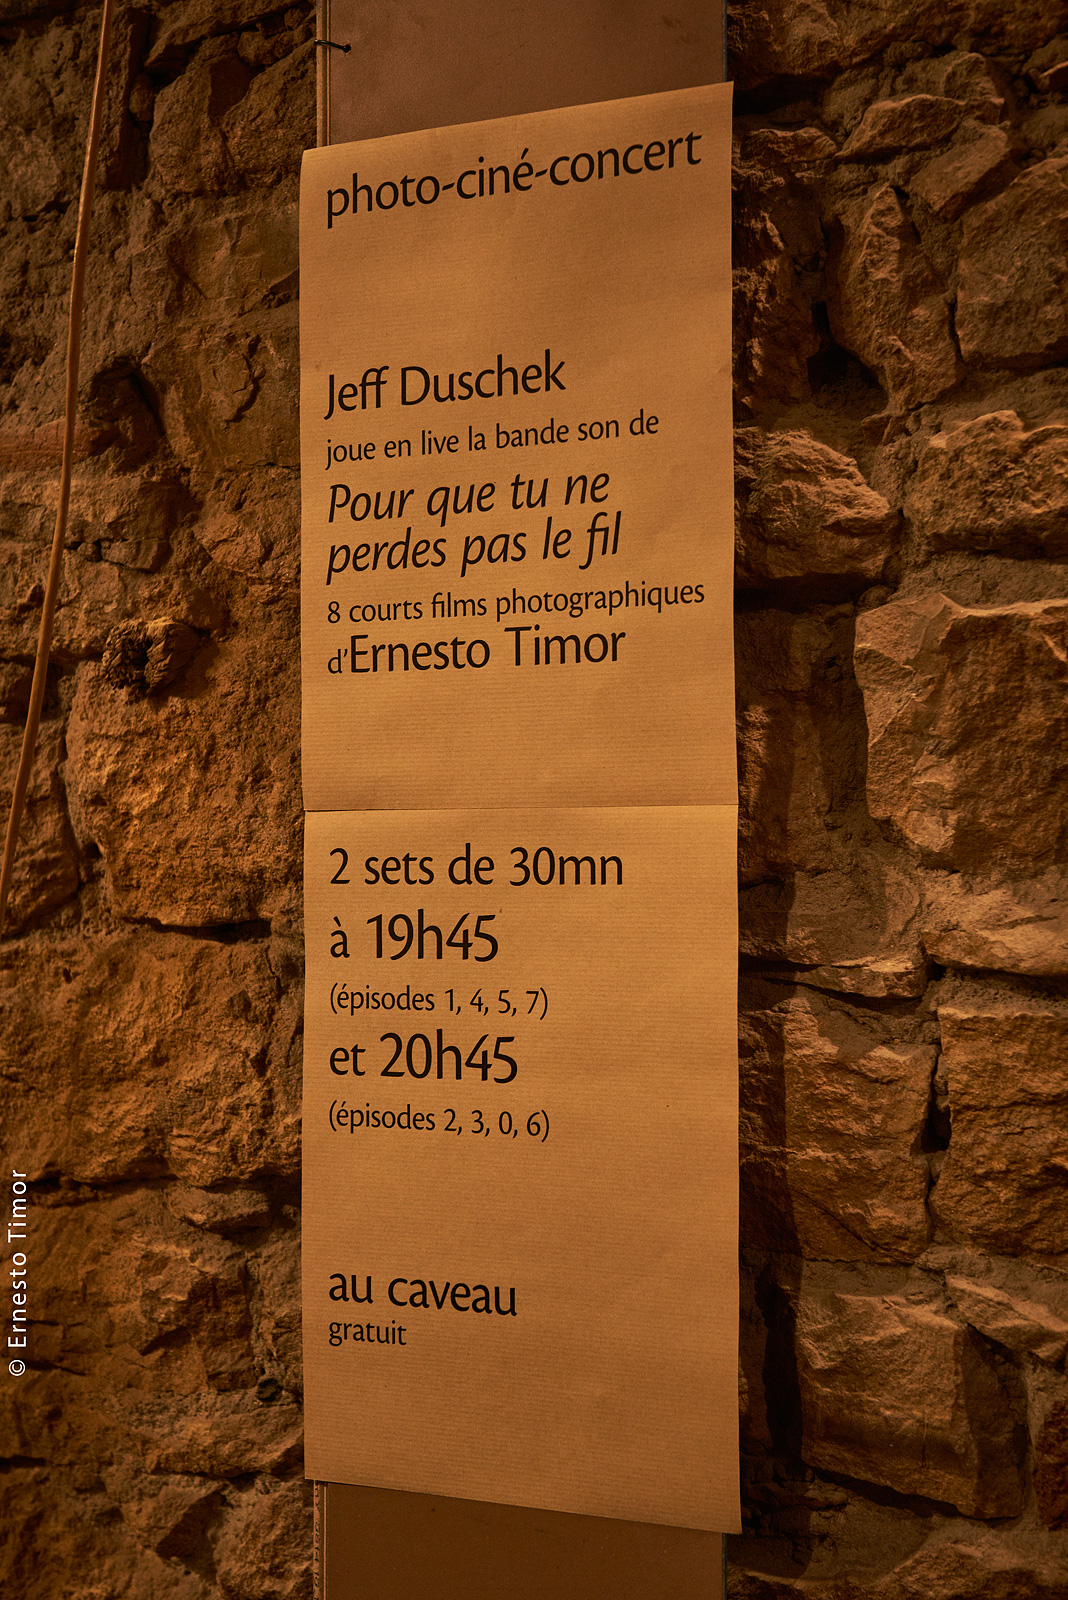 photo-ciné-concert
Jeff Duschek
joue en live la bande son de
Pour que tu ne
perdes pas le fil
8 courts films photographiques
d'Ernesto Timor
2 sets de 30mn
à 19h45
(épisodes 1, 4, 5, 7)
et 20h45
(épisodes 2, 3, 0, 6)
au caveau
gratuit
© Ernesto Timor